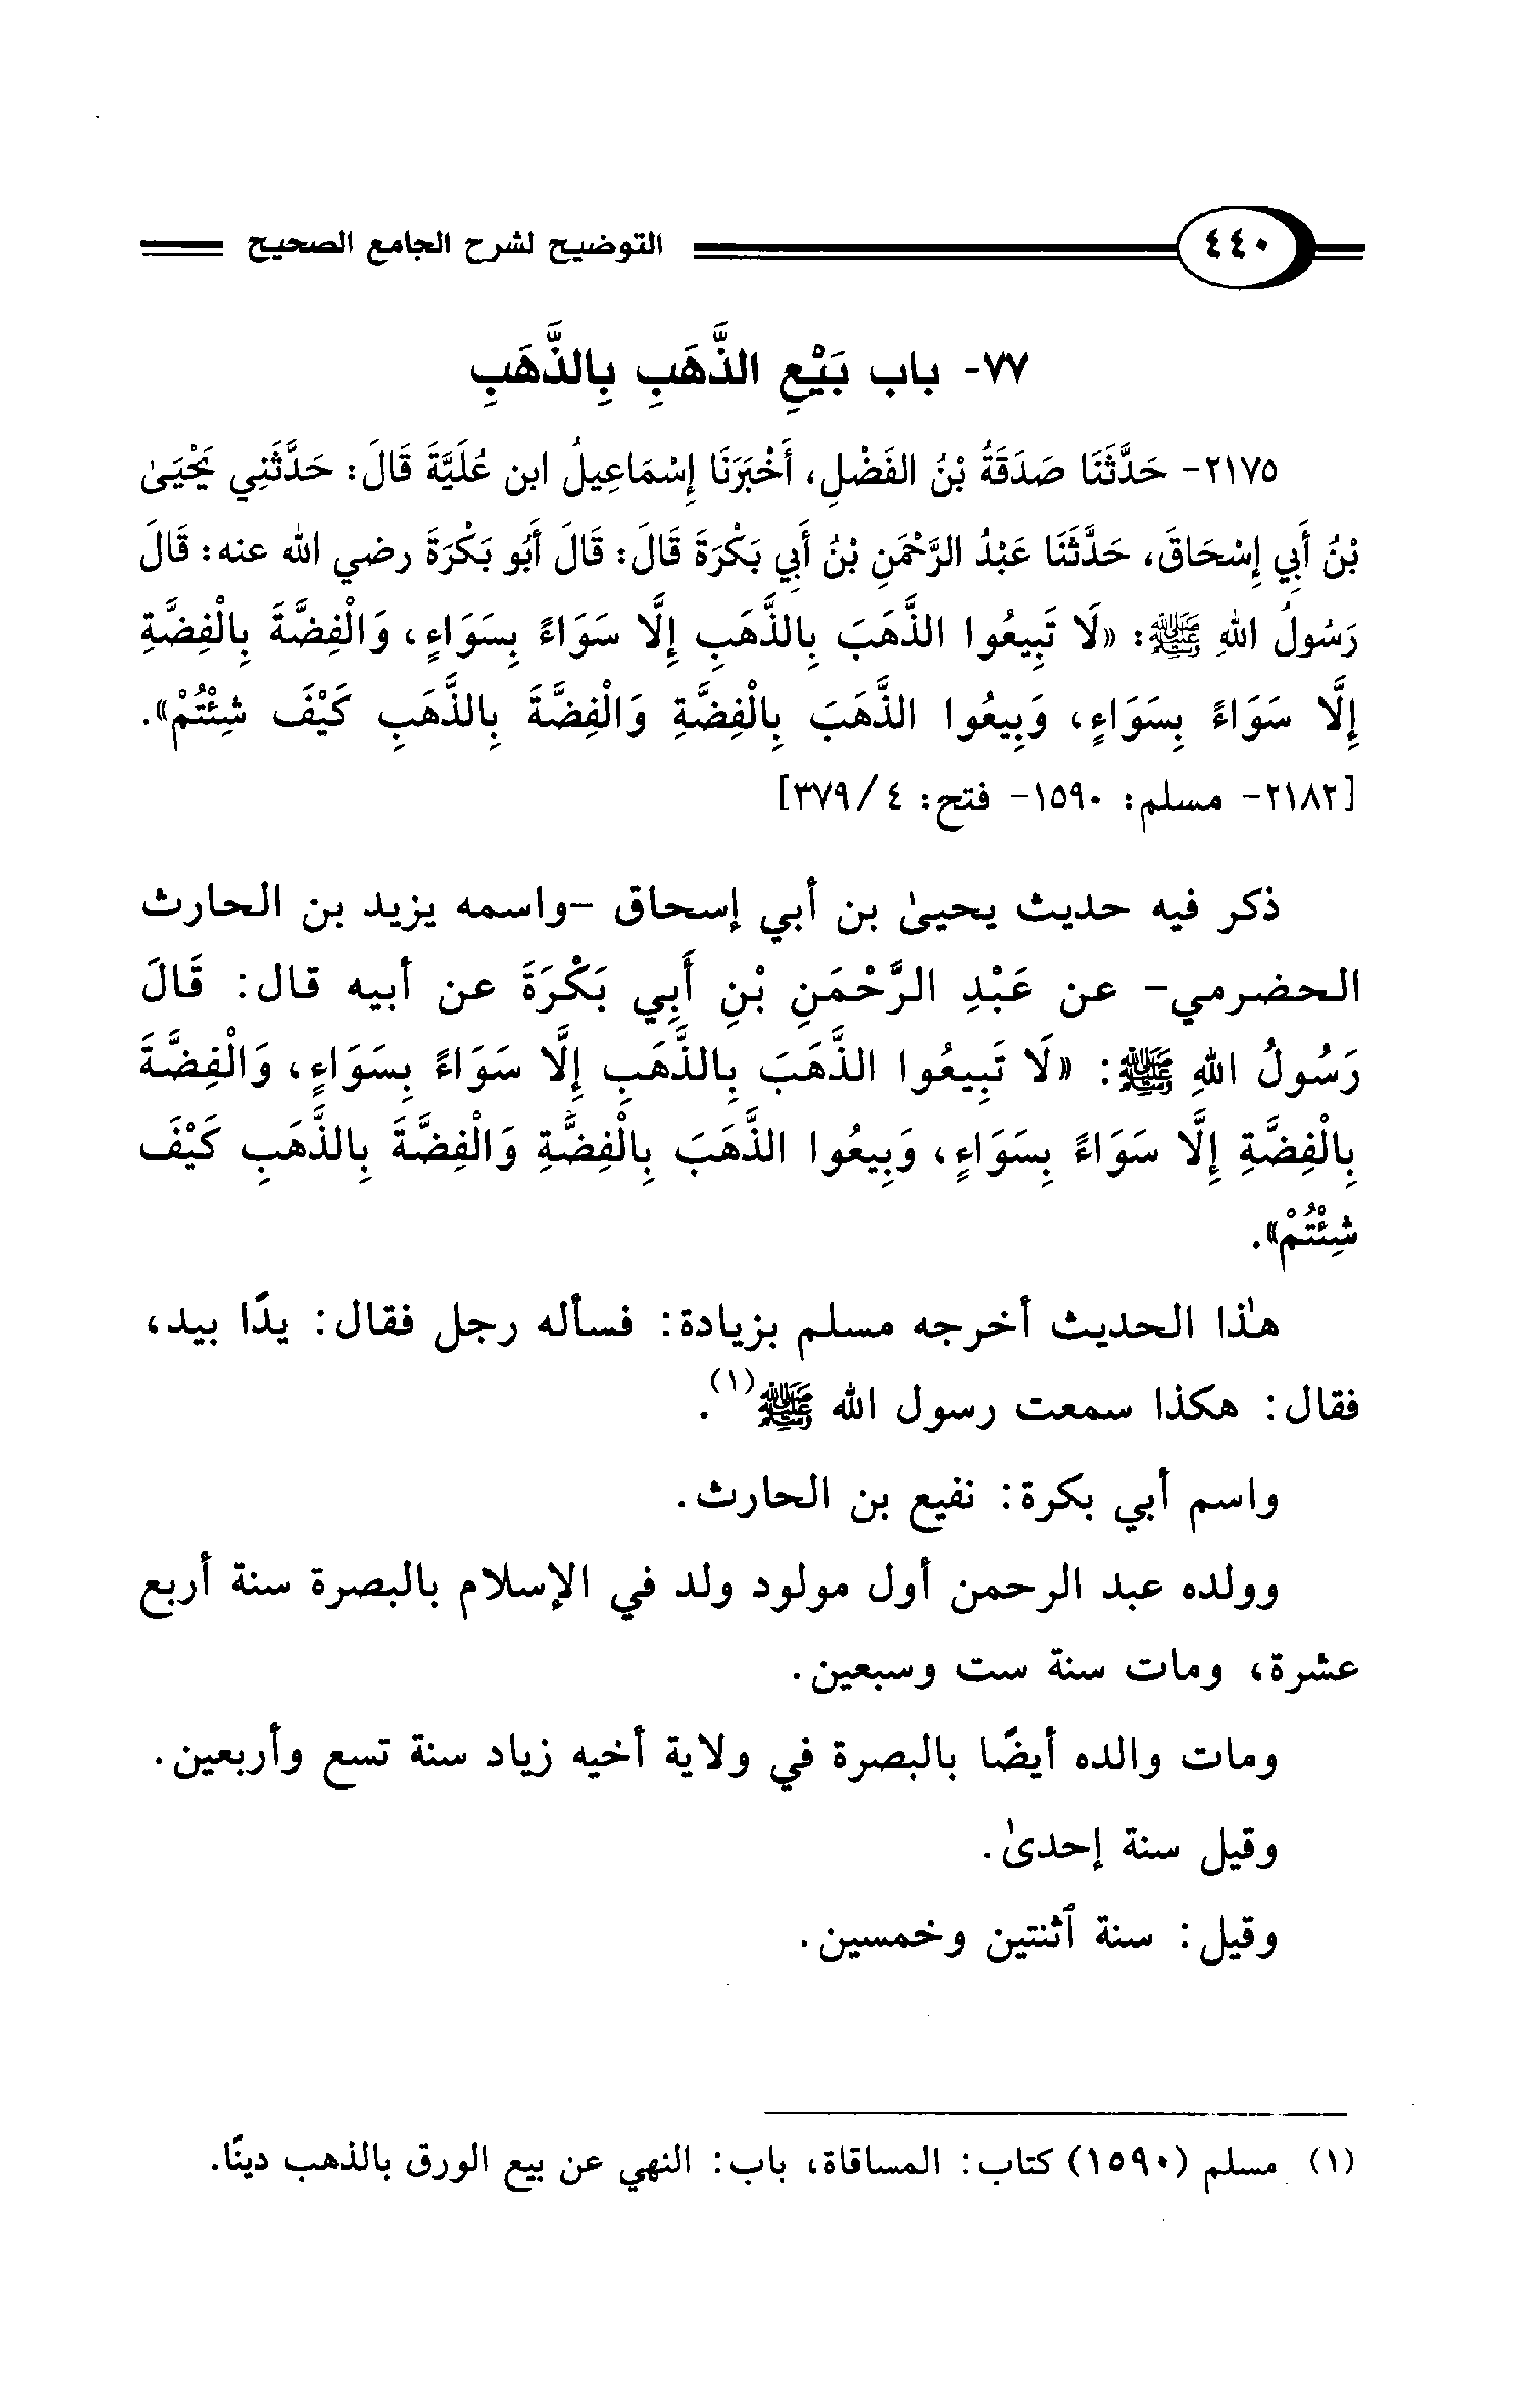 ٤٤٠ التوضيح لشرح الجامع الصحيح
٧٧- باب بَيْعِ الذَّهَبِ بِالذَّهَبِ
٢١٧٥- حَدَّثَنَا صَدَقَةُ بْنُ الفَضْلِ، أَخْبَرَنَا إِسْمَاعِيلُ ابن عُلَيَّةَ قَالَ: حَدَّثَنِي يَحْيَىٰ
بْنُ أَبِي إِسْحَاقَ، حَدَّثَنَا عَبْدُ الرَّحْمَنِ بْنُ أَبِي بَكْرَةَ قَالَ: قَالَ أَبُو بَكْرَةَ رضي الله عنه: قَالَ
رَسُولُ اللهِ ﷺ: «لَا تَبِيعُوا الذَّهَبَ بِالذَّهَبِ إِلَّا سَوَاءً بِسَوَاءٍ، وَالْفِضَّةَ بِالْفِضَّةِ
إِلَّا سَوَاءً بِسَوَاءٍ، وَبِيعُوا الذَّهَبَ بِالْفِضَّةِ وَالْفِضَّةَ بِالذَّهَبِ كَيْفَ شِئْتُمْ».
[٢١٨٢- مسلم: ١٥٩٠- فتح: ٤/ ٣٧٩]
ذكر فيه حديث يحيىٰ بن أبي إسحاق -واسمه يزيد بن الحارث
الحضرمي- عن عَبْدِ الرَّحْمَنِ بْنِ أَبِي بَكْرَةَ عن أبيه قال: قَالَ
رَسُولُ اللهِ ﷺ: «لَا تَبِيعُوا الذَّهَبَ بِالذَّهَبِ إِلَّا سَوَاءً بِسَوَاءٍ، وَالْفِضَّةَ
بِالْفِضَّةِ إِلَّا سَوَاءً بِسَوَاءٍ، وَبِيعُوا الذَّهَبَ بِالْفِضَّةِ وَالْفِضَّةَ بِالذَّهَبِ كَيْفَ
شِئْتُمْ».
هٰذا الحديث أخرجه مسلم بزيادة: فسأله رجل فقال: يدًا بيد،
فقال: هكذا سمعت رسول الله ﷺ(١).
واسم أبي بكرة: نفيع بن الحارث.
وولده عبد الرحمن أول مولود ولد في الإسلام بالبصرة سنة أربع
عشرة، ومات سنة ست وسبعين.
ومات والده أيضًا بالبصرة في ولاية أخيه زياد سنة تسع وأربعين.
وقيل سنة إحدىٰ.
وقيل: سنة ٱثنتين وخمسين.
(١) مسلم (١٥٩٠) كتاب: المساقاة، باب: النهي عن بيع الورق بالذهب دينًا.